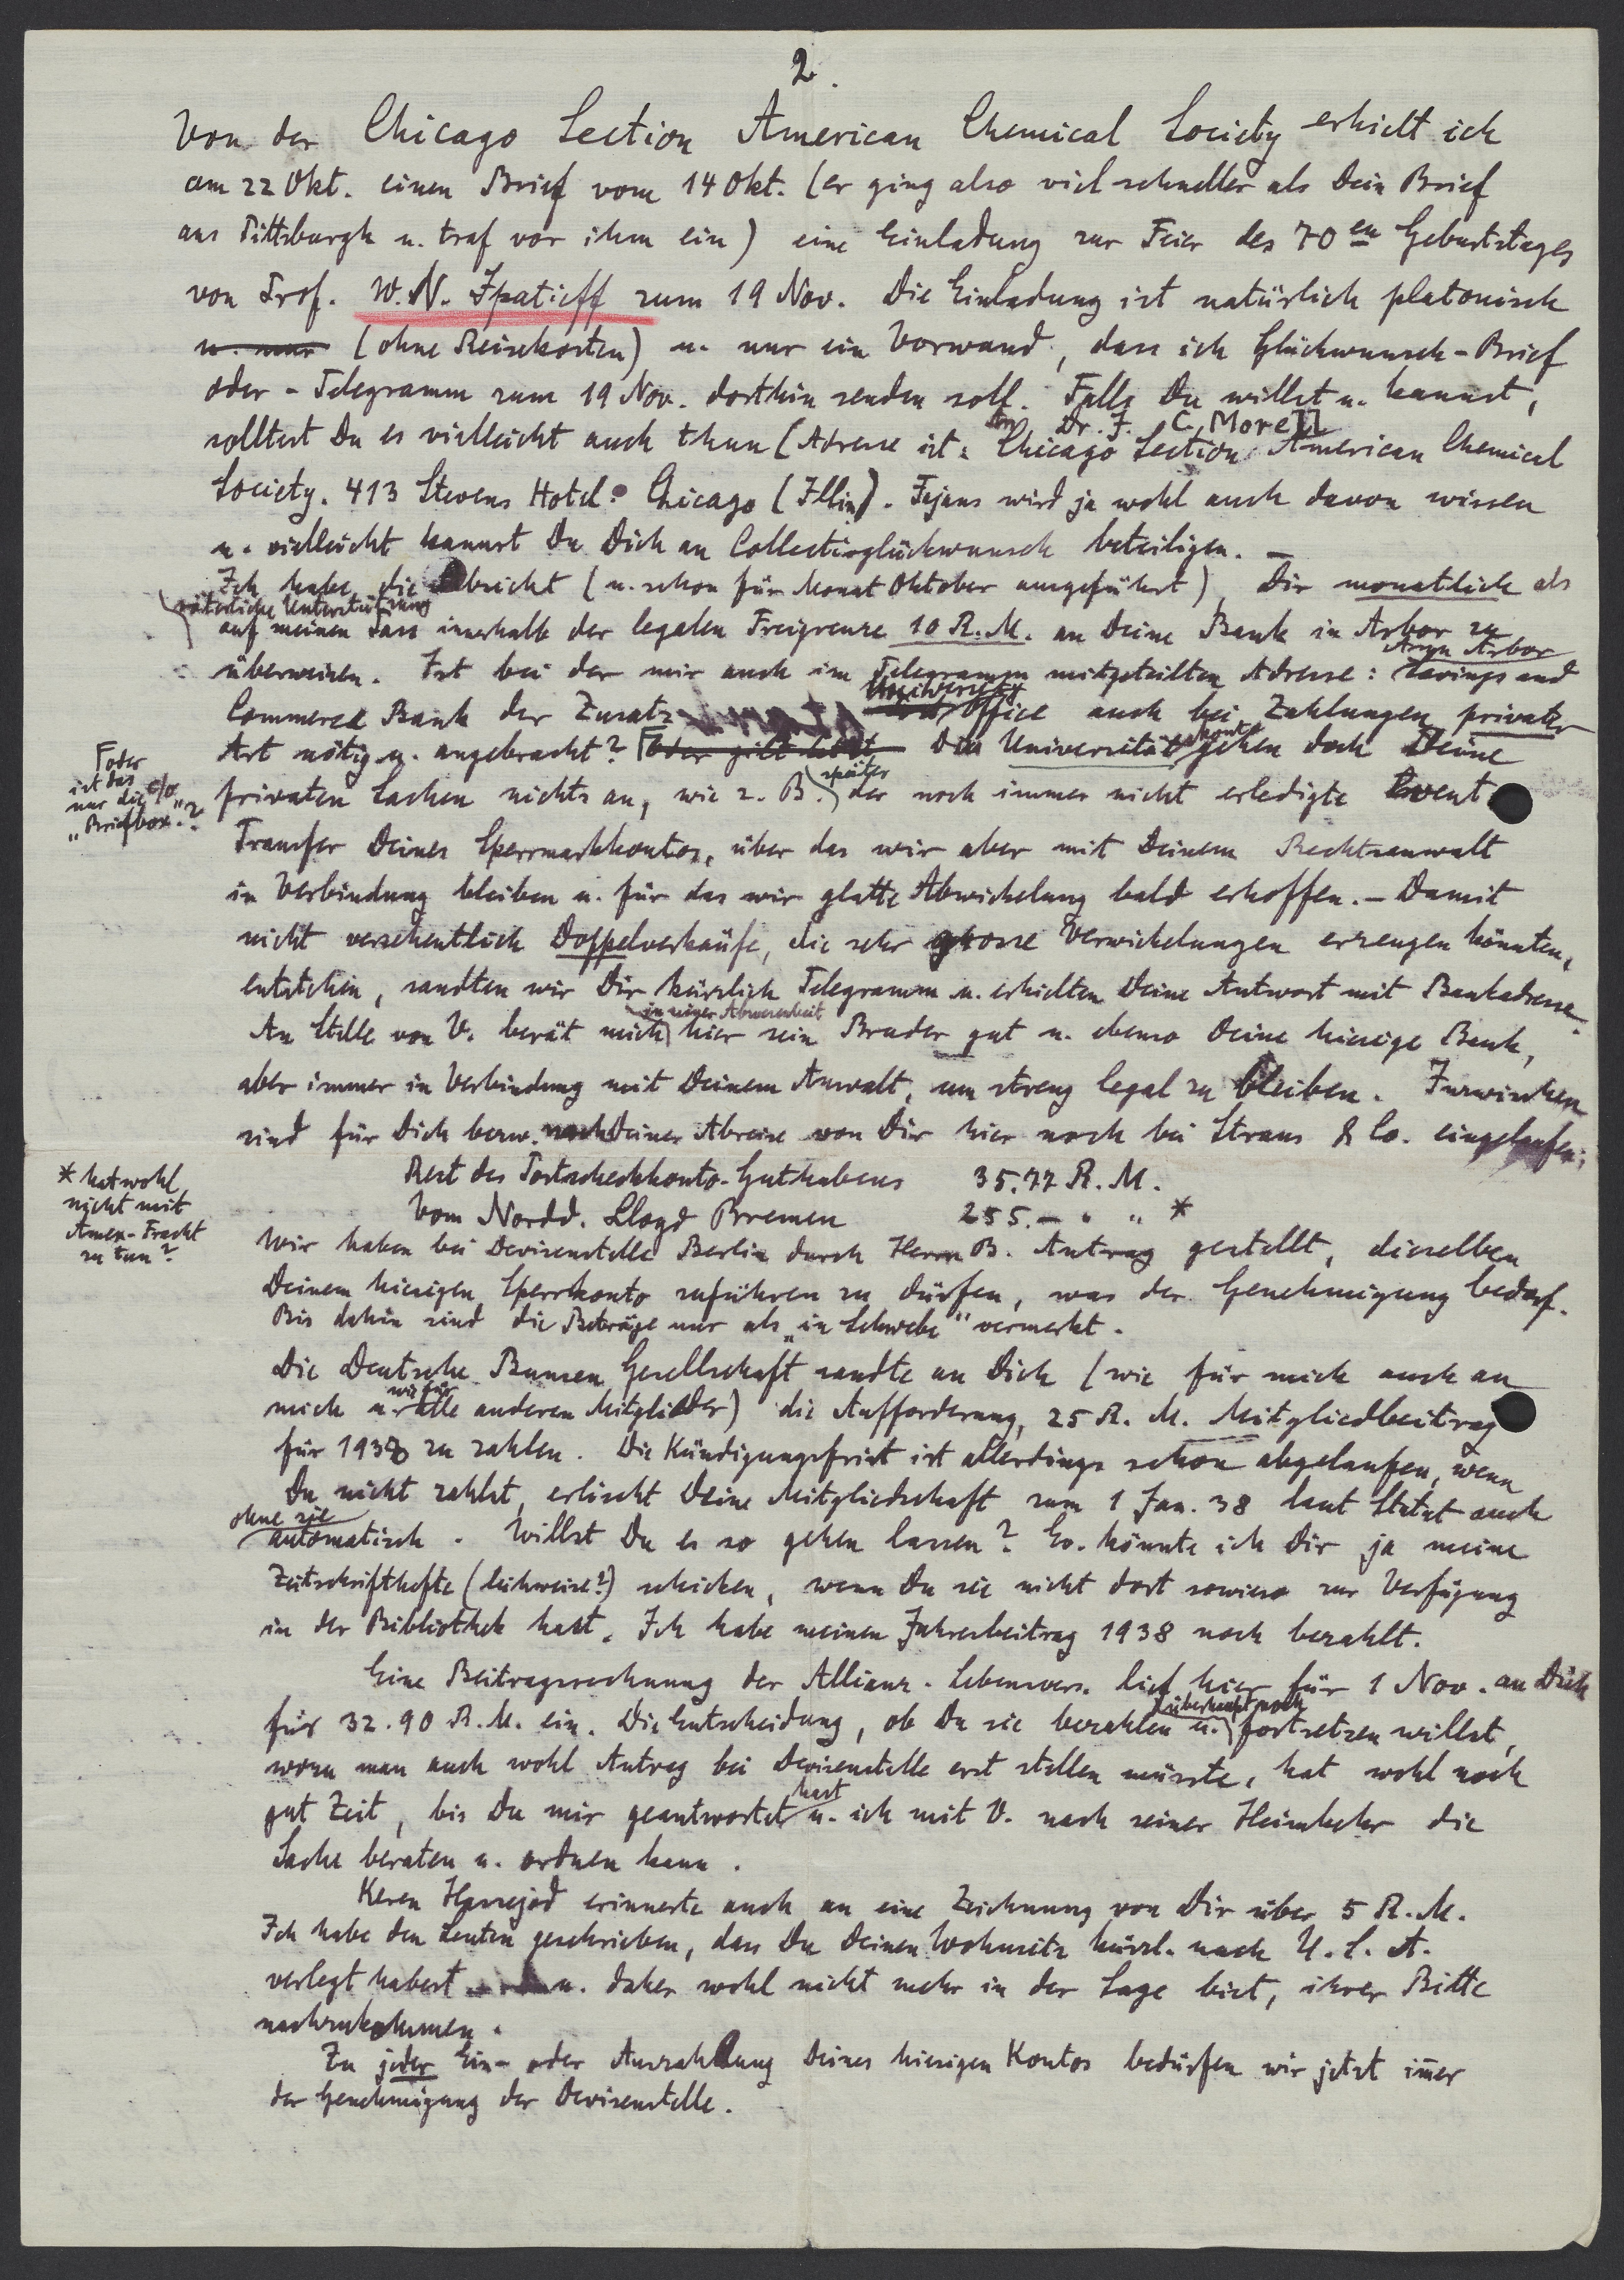 2.
Von der Chicago Section American Chemical Society erhielt ich
am 22 Okt. einen Brief vom 14 Okt. (er ging also viel schneller als Dein Brief
aus Pittsburgh u. traf vor ihm ein) eine Einladung zur Feier des 70en Geburtstages
von Prof. W. N. Ipatieff zum 19 Nov. Die Einladung ist natürlich platonisch
u. nur (ohne Reisekosten) u. nur ein Vorwand, dass ich Glückwunsch-Brief
oder - Telegramm zum 19 Nov. dorthin senden soll. Falls Du willst u. kannst,
An Dr. J. C. Morell
solltest Du es vielleicht auch thun (Adresse ist: Chicago Section American Chemical
Society. 413 Stevens Hotel. Chicago (Illin). Fajans wird ja wohl auch davon wissen
u. vielleicht kannst Du Dich an Collectivglückwunsch beteiligen. —
Ich habe die Absicht (u. schon für Monat Oktober ausgeführt), Dir monatlich als
väterliche Unterstützung
auf meinen Pass innerhalb der legalen Freigrenze 10 R.M. an Deine Bank in Arbor zu
Ann Arbor
überweisen. Ist bei der mir auch im Telegramm mitgeteilten Adresse: Savings and
University
Commerce Bank der Zusatz Office auch bei Zahlungen privater
Art nötig u. angebracht? Oder gilt Die Universität gehen doch Deine
sonst
Γ oder
ist das
nur die c/o
"Briefbox"?
später
privaten Sachen nichts an, wie z. B. der noch immer nicht erledigte Event.
Transfer Deines Sperrmarkkontos, über das wir aber mit Deinem Rechtsanwalt
in Verbindung bleiben u. für das wir glatte Abwickelung bald erhoffen. — Damit
nicht versehentlich Doppelverkäufe, die sehr grosse Verwickelungen erzeugen könnten,
entstehen, sandten wir Dir kürzlich Telegramm u. erhielten Deine Antwort mit Bankadresse.
in seiner Abwesenheit
An Stelle von V. berät mich hier sein Bruder gut u. ebenso Deine hiesige Bank,
aber immer in Verbindung mit Deinem Anwalt, um streng legal zu bleiben. Inzwischen
sind für Dich bezw. nach Deiner Abreise von Dir hier noch bei Straus & Co. eingelaufen:
Rest des Postscheckkonto-Guthabens 35.77 R. M.
Vom Nordd. Lloyd Bremen 255.— " " *
* hat wohl
nicht mit
Amex-Fracht
zu tun?
Wir haben bei Devisenstelle Berlin durch Herrn B. Antrag gestellt, dieselben
Deinem hiesigen Sperrkonto zuführen zu dürfen, was der Genehmigung bedarf.
Bis dahin sind die Beträge nur als „in Schwebe" vermerkt.
Die Deutsche Bunsen Gesellschaft sandte an Dich (wie für mich auch an
wie für
mich u. alle anderen Mitglieder) die Aufforderung, 25 R. M. Mitgliedbeitrag
für 1938 zu zahlen. Die Kündigungsfrist ist allerdings schon abgelaufen, wenn
Du nicht zahlst, erlischt Deine Mitgliedschaft zum 1 Jan. 38 laut Statut auch
ohne sie
automatisch. Willst Du es so gehen lassen? Ev. könnte ich Dir ja meine
Zeitschrifthefte (leihweise?) schicken, wenn Du sie nicht dort sowieso zur Verfügung
in der Bibliothek hast. Ich habe meinen Jahresbeitrag 1938 noch bezahlt.
Eine Beitragsrechnung der Allianz-Lebensvers. lief hier für 1 Nov. an Dich
überhaupt noch
für 32.90 R.M. ein. Die Entscheidung, ob Du sie bezahlen u. fortsetzen willst,
wozu man auch wohl Antrag bei Devisenstelle erst stellen müsste, hat wohl noch
hast
gut Zeit, bis Du mir geantwortet u. ich mit V. nach seiner Heimkehr die
Sache beraten u. ordnen kann.
Keren Hajessod erinnerte auch an eine Zeichnung von Dir über 5 R.M.
Ich habe den Leuten geschrieben, dass Du Deinen Wohnsitz kürzl. nach U. S. A.
verlegt habest u. daher wohl nicht mehr in der Lage bist, ihrer Bitte
nachzukommen.
Zu jeder Ein- oder Auszahlung Deines hiesigen Kontos bedürfen wir jetzt im̄er
der Genehmigung der Devisenstelle.